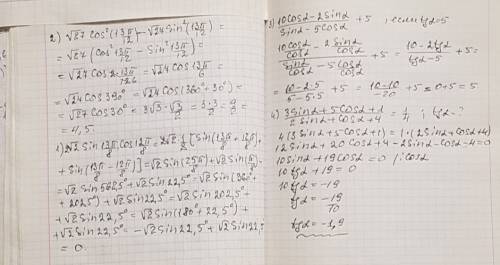 2) √27 cos²(13π/12) − √27 sin²(13π/12) =
= √27 (cos² 13π/12 − sin² 13π/12) =
= √27 cos 2·13π/12 6 = √27 cos 13π/6 =
= √27 cos 390° = √27 cos (360° + 30°) =
= √27 cos 30° = 3√3 · √3/2 = 3·3/2 = 9/2 =
= 4,5.
sin 13π/8 cos 12π/8 = 2√2 · 1/2 [sin (13π/8 +
+ sin (13π/8 − 12π/8)] = √2 sin (25π/8) + √2 sin
= √2 sin 562,5° + √2 sin 22,5° = √2 sin (360° +
+ 202,5°) + √2 sin 22,5° = √2 sin 202,5° +
+ √2 sin 22,5° = √2 sin (180° + 22,5°) +
+ √2 sin 22,5° = −√2 sin 22,5° + √2 sin 22,5
= 0.
3) 10cosα − 2sinα / sinα − 5cosα + 5 , если tgα = 5
10 cosα/cosα − 2 sinα/cosα / sinα/cosα − 5 cosα/cosα + 5 = 10 − 2tgα / tgα − 5 + 5 =
= 10 − 2·5 / −5·5 + 5 = 10−10 / −20 + 5 = 0 + 5 = 5
4) 3sinα + 5cosα + 1 / 2sinα + cosα + 4 = 1/4 ; tgα - ?
4(3sinα + 5cosα + 1) = 1·(2sinα + cosα + 4)
12sinα + 20cosα + 4 − 2sinα − cosα − 4 = 0
10sinα + 19cosα = 0 |:cosα
10 tgα + 19 = 0
10 tgα = −19
tgα = −19/10
tgα = −1,9